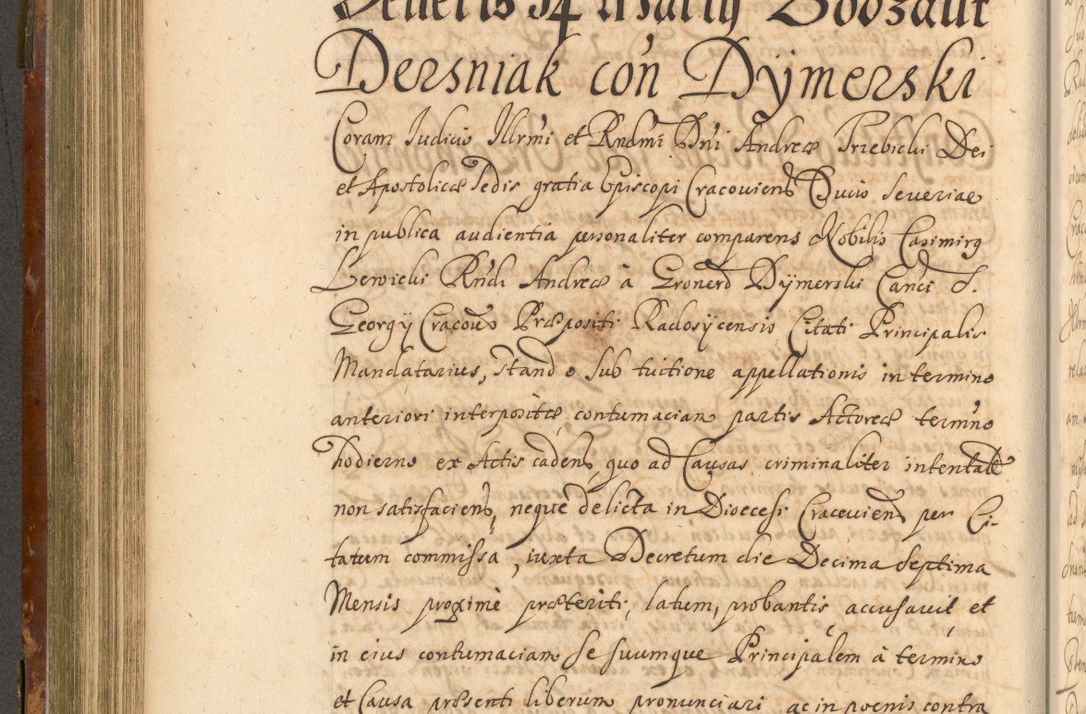 Veneris 14 Martij Bodzant
Dersniak con Dÿmerski
Coram Iudicio Illrmi et Rndmi Dni Andreæ Trzebicki Dei
et Apostolicæ Sedis gratia Episcopi Cracouiens Ducis Seueriae
in publica audientia personaliter comparens Nobilis Casimirq
Lewicki Rndi Andreæ à Gronerd Dÿmerski Canci S.
Georgÿ Cracou Præpositi Radosÿcensis Citati Principalis
Mandatarius, Stando Sub tuctione appellationis in termino
anteriori interpositæ, contumaciam partis Actoreæ termino
hodierno ex Actis cadens, quo ad Causas criminaliter intentatas
non satisfaciens, neque delicta in Dioecesi Cracouiens per Ci-
tatum commissa, iuxta Decretum die Decima Septima
Mensis proxime præteriti, latum, probantis accusauit et
in eius contumaciam Se Suumque Principalem à termino
et Causa præsenti liberum pronunciari ac in poenis contra